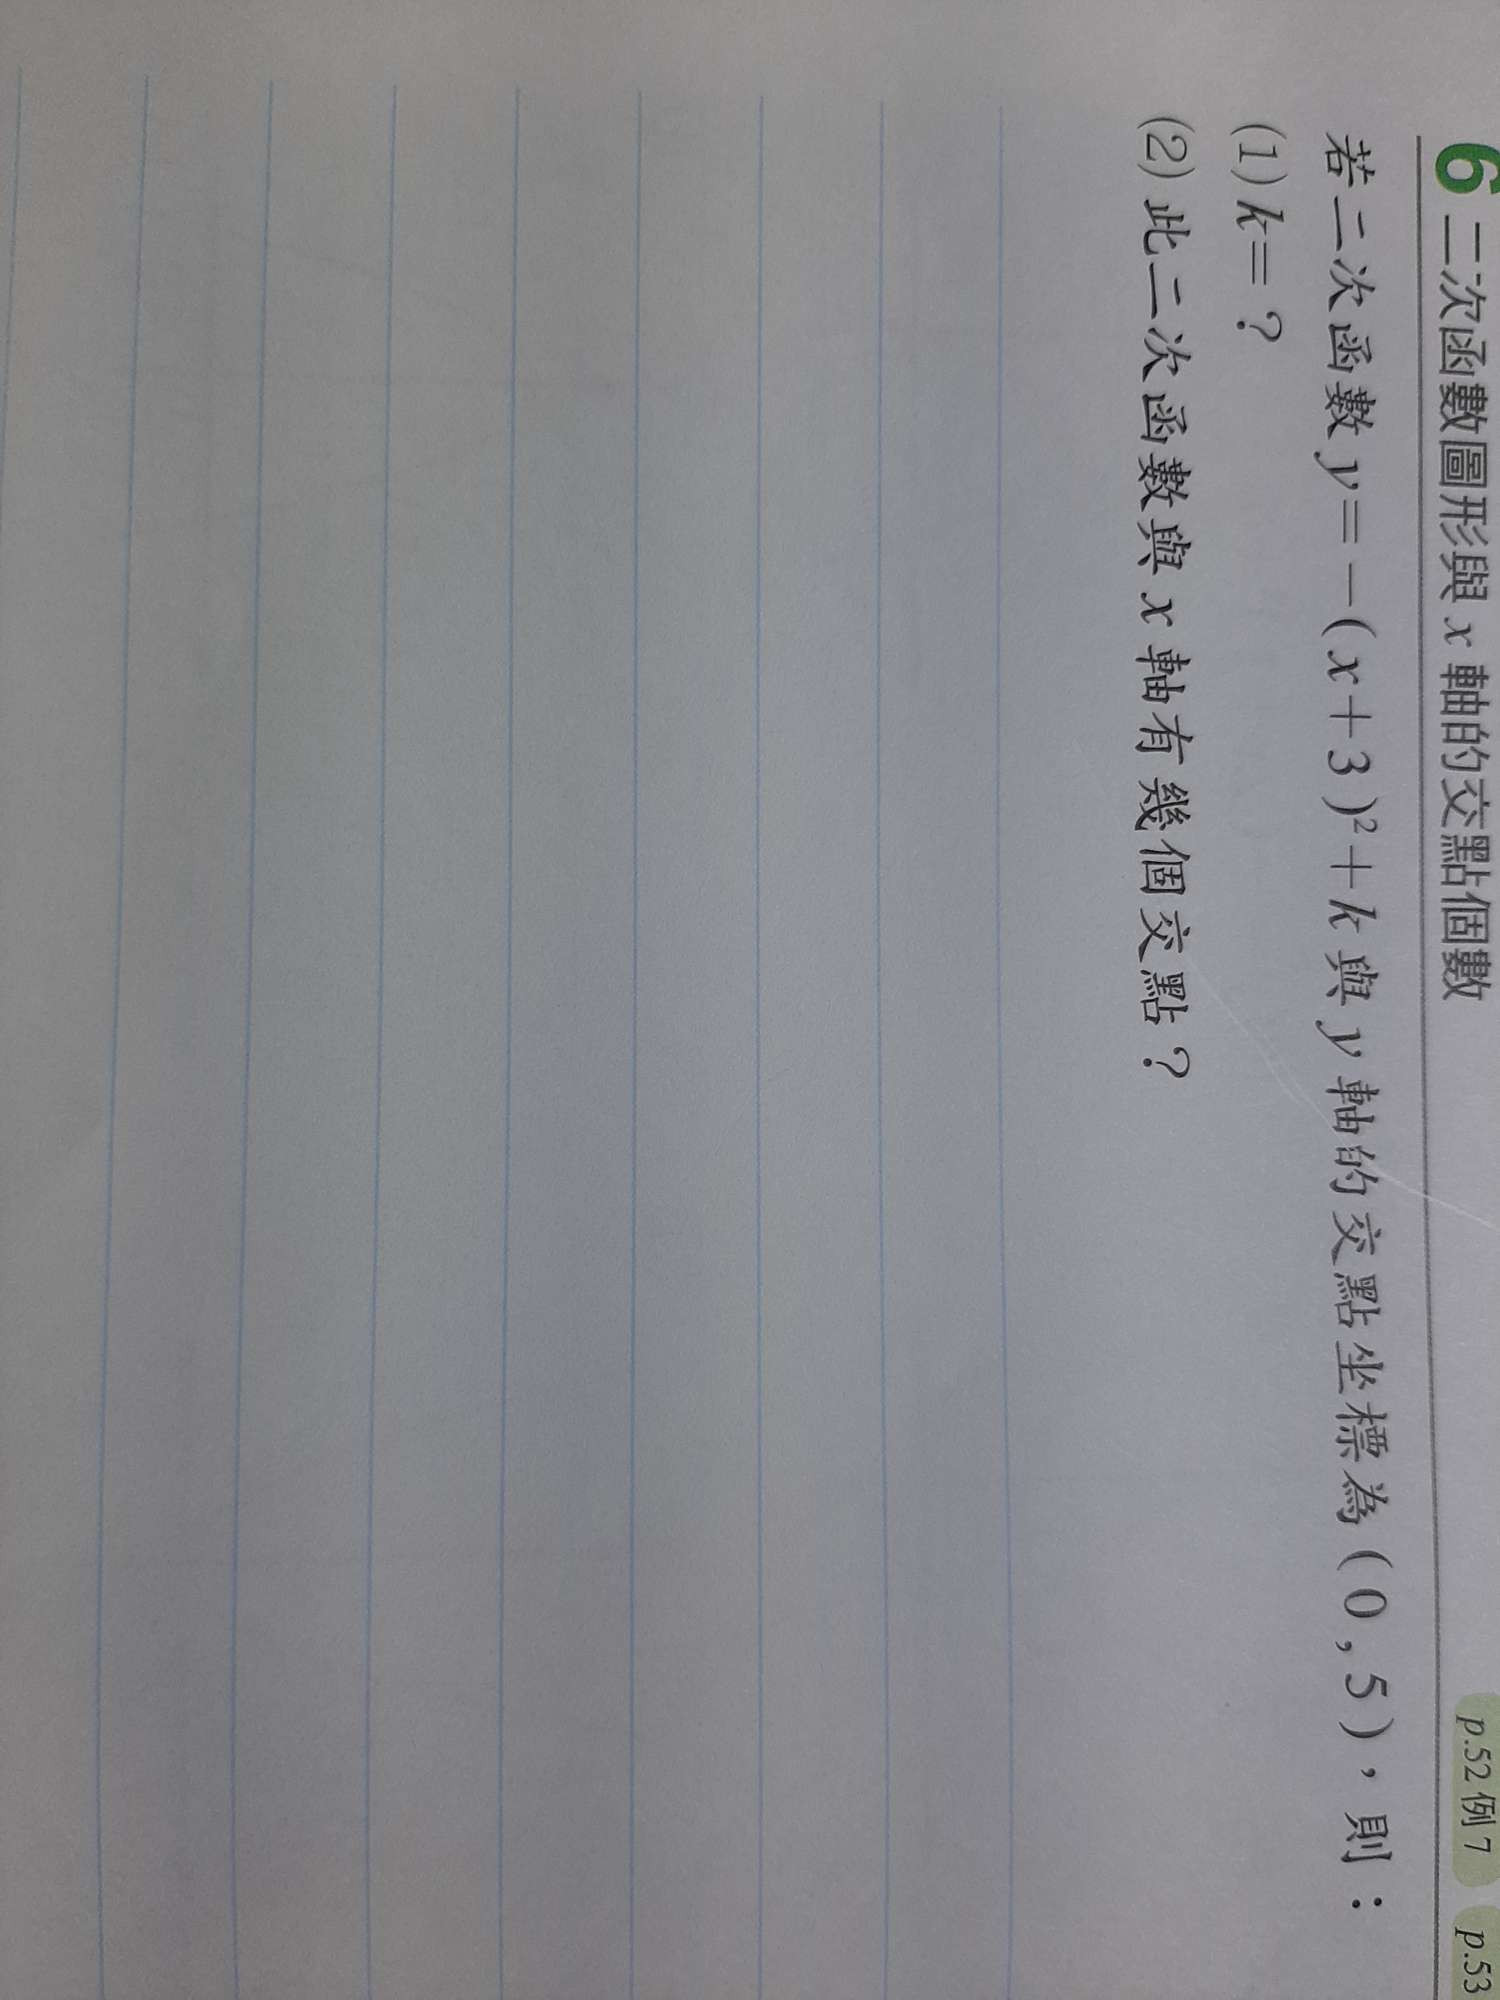 6 二次函數圖形與 x 軸的交點個數 p.52 例 7 p.53
若二次函數 y=-(x+3)²+k 與 y 軸的交點坐標為 (0,5),則:
(1) k=?
(2) 此二次函數與 x 軸有幾個交點?